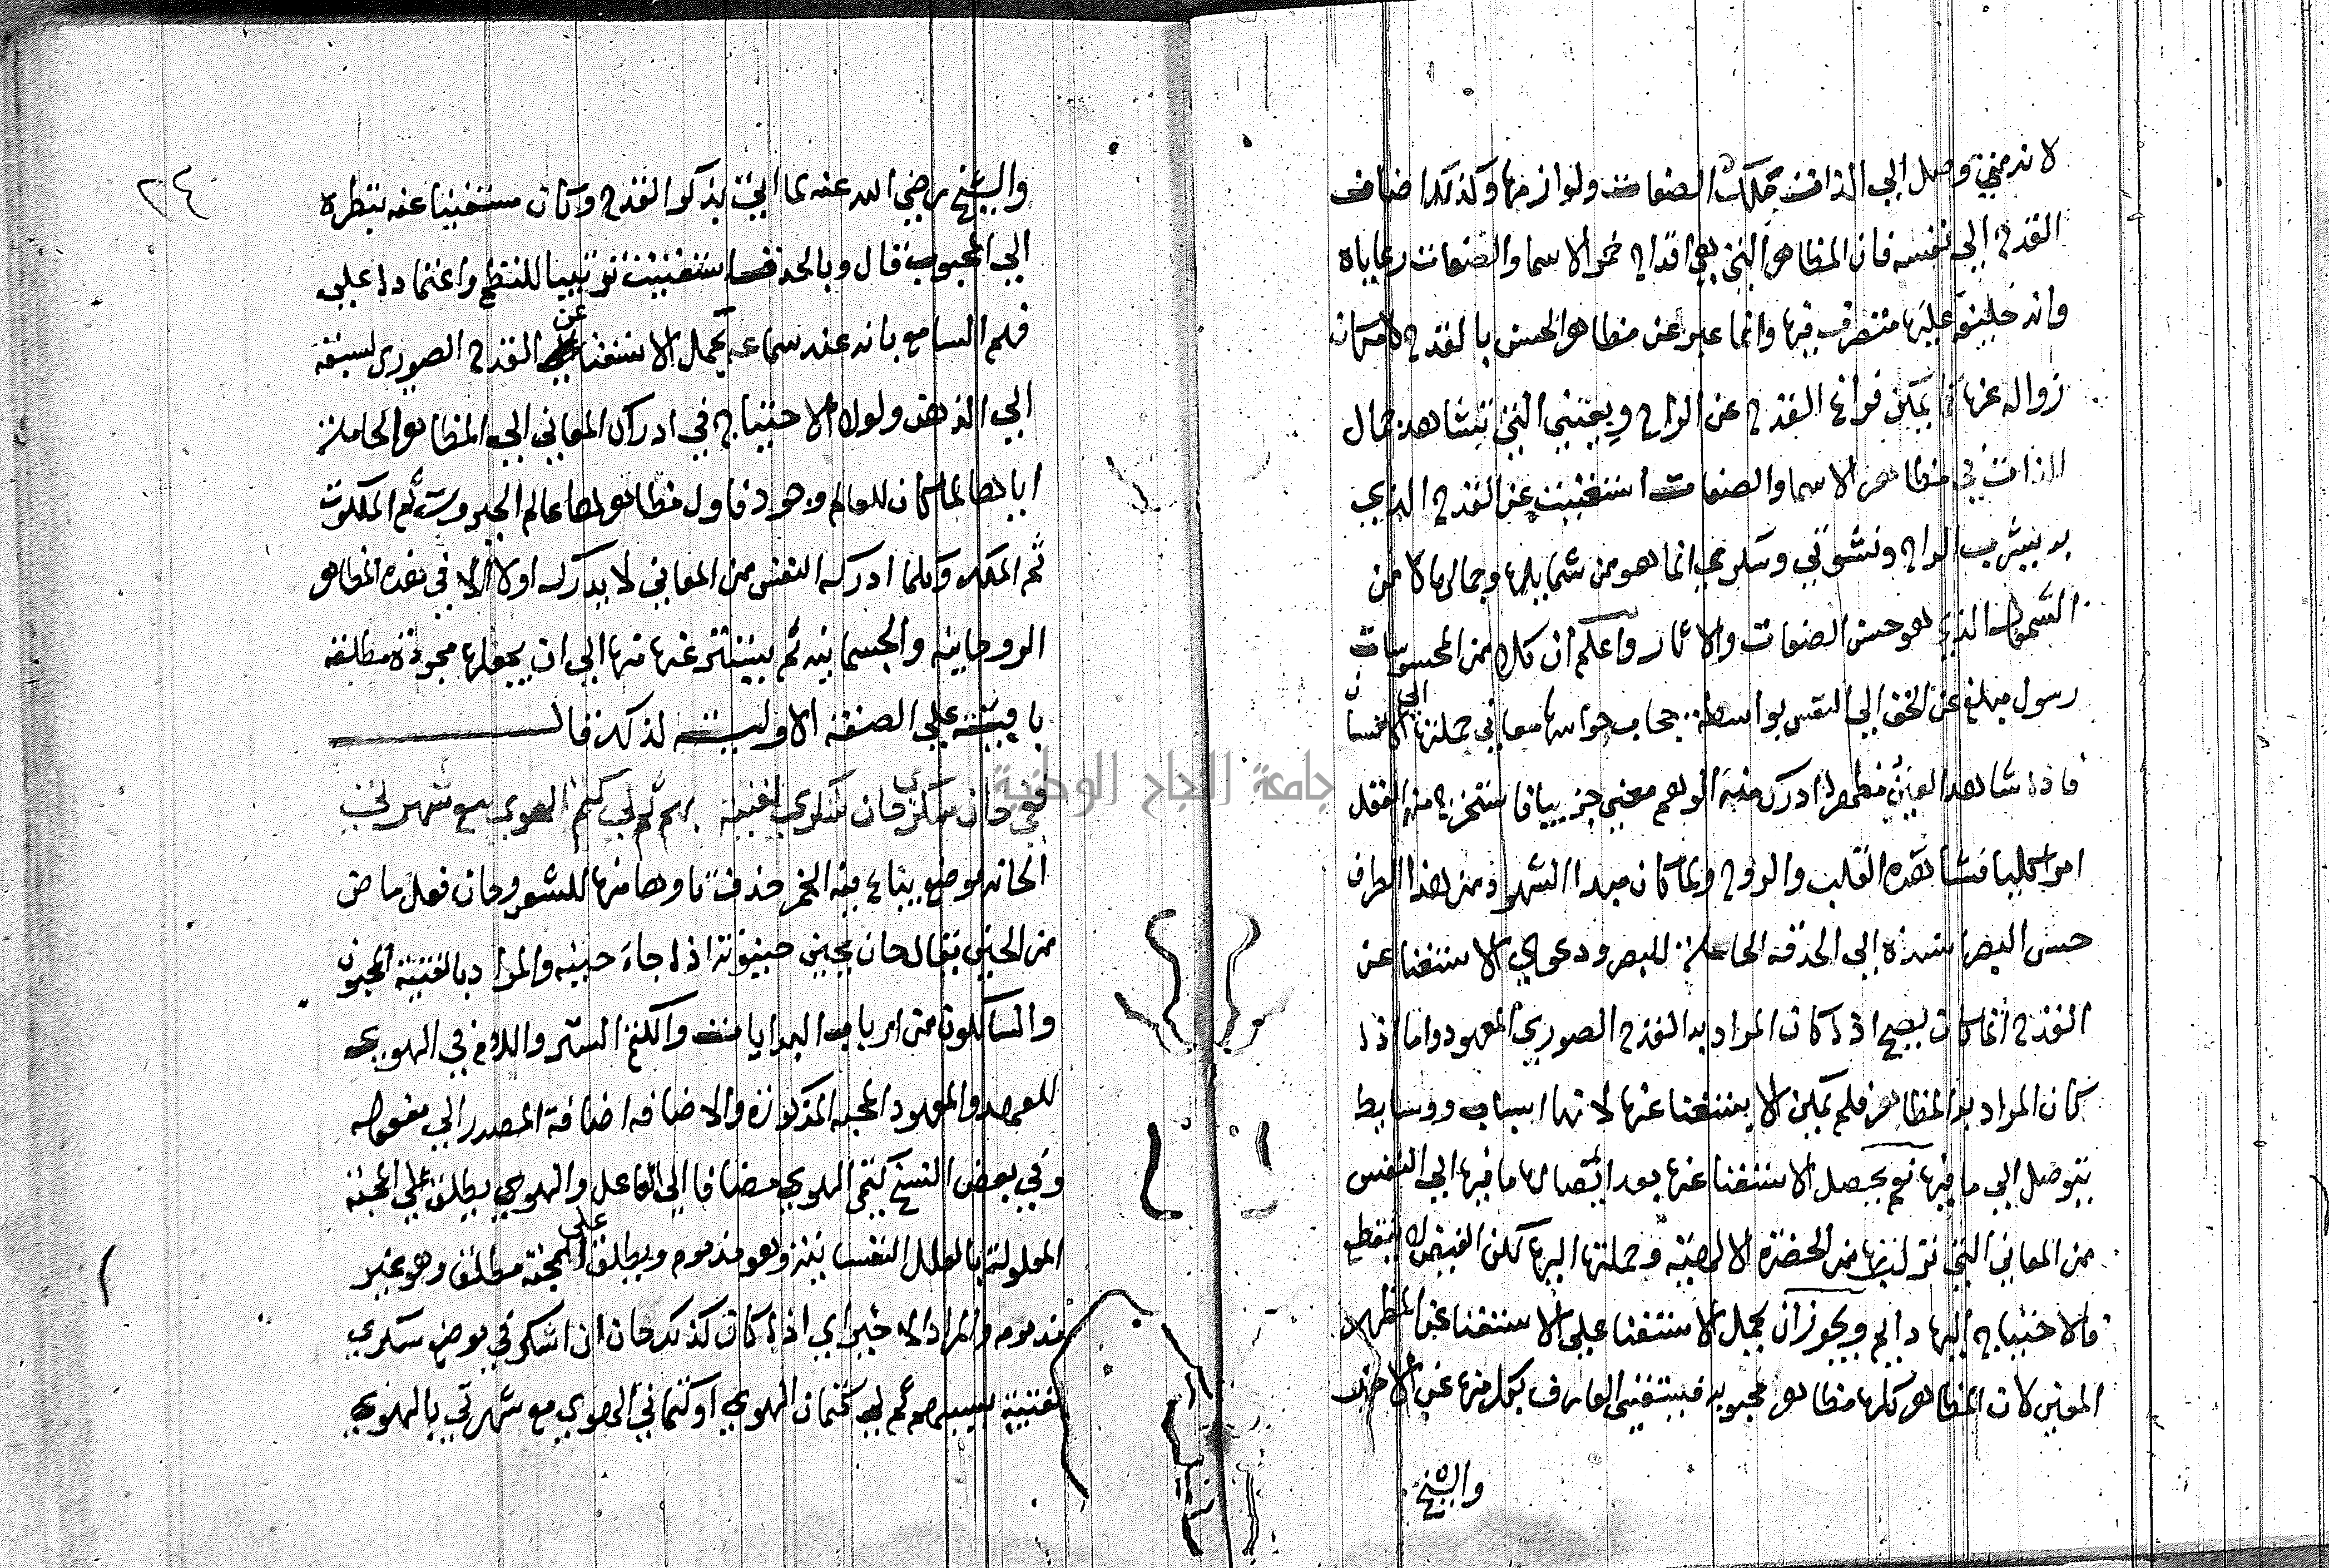 لانه متي وصل الي الذات ملك الصفات ولوازمها وكذلك اضاف
القدح الي نفسه فان المظاهر التي هي اقداح خمر الاسما والصفات رعاياه
وانه خليفة عليها متصرف فيها وانما عبر عن مظاهر الحسن بالقدح لامكان
زواله عنها كما يمكن فراغ القدح عن الراح ويعني اني بمشاهدة جمال
الذات في مظاهر الاسما والصفات استغنيت عن القدح الذي
به يشرب الراح ونشوتي وسكري انما هو من شمايلها وجمالها لا من
الشمول الذي هو حسن الصفات والاثار واعلم ان كلا من المحسوسات
رسول مبلغ عن الحق الي النفس بواسطة حجاب حواسها معاني حملتها الي الانسان
فاذا شاهد العين مظهرا ادرك منه الوهم معني جزييا فاستخرج منه العقل
امرا كليا فشاهده القلب والروح ولما كان مبدا الشهود من هذا الطرف
حس البصر اسنده الي الحدقة الحاملة للبصر ودعوي الاستغنا عن
القدح انما كان يصح اذا كان المراد به القدح الصوري المعهود واما اذا
كان المراد به المظاهر فلم يمكن الاستغنا عنها لانها اسباب ووسايط
يتوصل الي ما فيها نعم يحصل الاستغنا عنها بعد ايصالها ما فيها الي النفس
من المعاني التي نزلت من الحضرة الالهية وحملتها اليها لكن الفيض لا ينقطع
فالاحتياج اليها دايم ويجوز ان يحمل الاستغنا علي الاستغنا عن المظهر
المعين لان المظاهر كلها مظاهر محبوبه فيستغني العارف بكل منها عن الاخر
والشيخ
٢٤
والشيخ رضي الله عنه لما اتي بذكر القدح وكان مستغنيا عنه بنظره
الي المحبوب قال وبالحدق استغنيت ترتيبا للنظم واعتمادا علي
فهم السامع بانه عند سماعه يحمل الاستغنا عن القدح الصوري لسبقه
الي الذهن ولولا الاحتياج في ادراك المعاني الي المظاهر الحاملة
اياها لما كان للعالم وجود فاول مظاهرها عالم الجبروت ثم الملكوت
ثم الملك وكلما ادركه النفس من المعاني لا يدركه اولا الا في هذه المظاهر
الروحانية والجسمانيه ثم ينتزعها منها الي ان يجعلها مجردة مطلقه
باقية علي الصفة الاولية لذلك قال
ففي حان سكري حان شكري لفتية بهم تم لي كتم الهوي مع شهرتي
الحانه موضع يباع فيه الخمر حذفت تاوها منها للشعر وحان فعل ماض
من الحين يقال حان يحين حينونة اذا جاء حينه والمراد بالفتية المحبون
والسالكون من ارباب البدايات والكتم الستر واللام في الهوي
للعهد والمعهود المحبه المذكورة والاضافه اضافة المصدر الي مفعوله
وفي بعض النسخ كتمي الهوي مضافا الي الفاعل والهوي يطلق علي المحبة
المعلولة بالعلل النفسانية وهو مذموم ويطلق علي المحبة مطلقا وهو غير
مذموم والمراد الاخير اي اذا كان كذلك حان ان اشكر في موضع سكري
لفتية بسببهم تم لي كتمان الهوي او كتماني الهوي مع شهرتي بالهوي
جامعة النجاح الوطنية